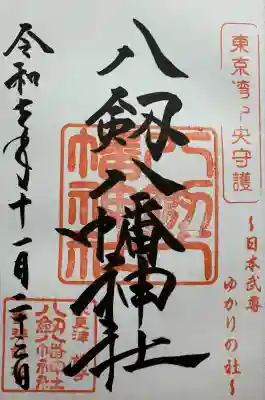 東京湾
守護
〜日本武尊
ゆかりの社〜
八剱八幡神社
八剱八幡神社
令和七年十一月二十三日
木更津
八剱八幡神社